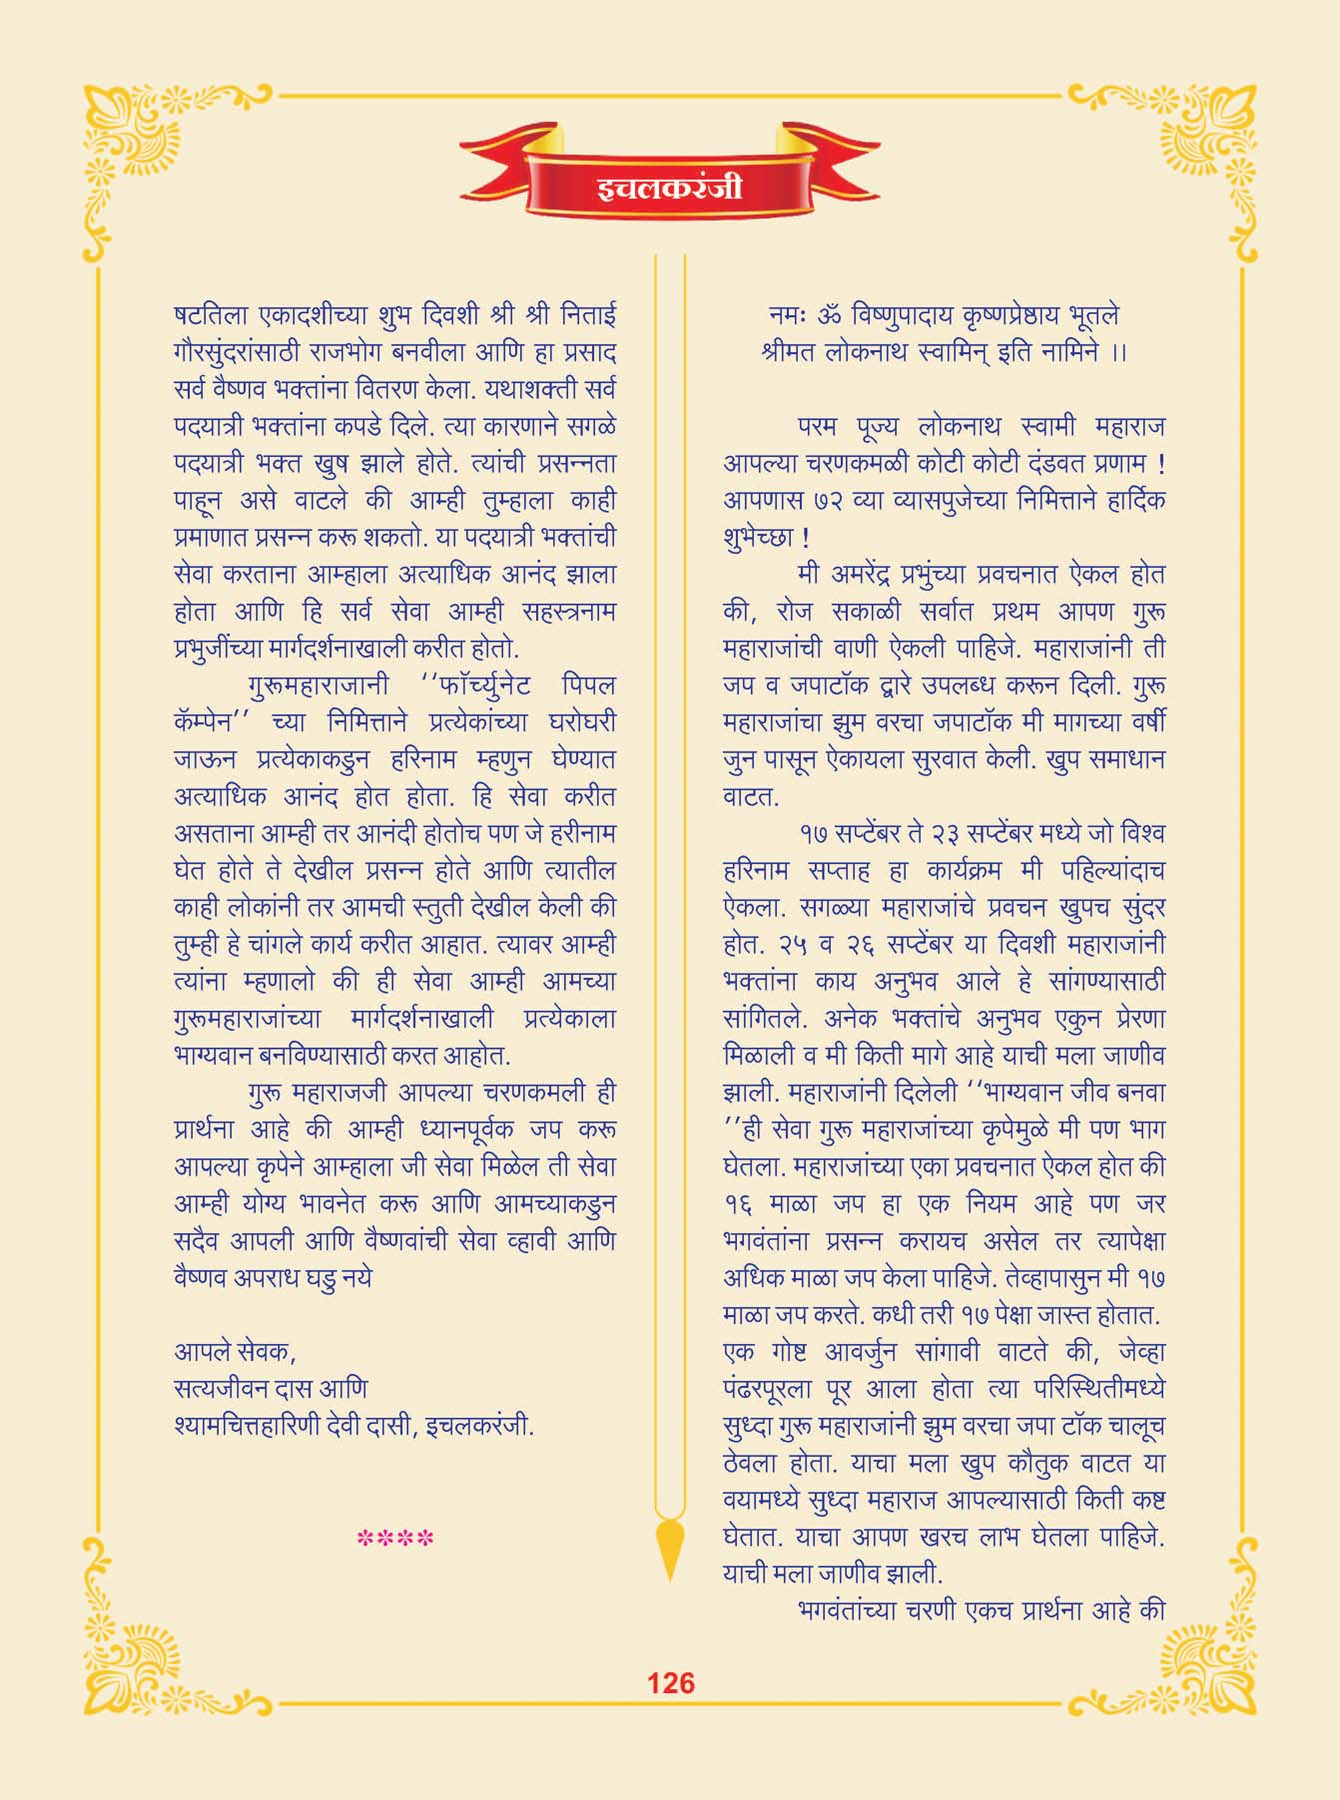 इचलकरंजी
षटतिला एकादशीच्या शुभ दिवशी श्री श्री निताई
गौरसुंदरांसाठी राजभोग बनवीला आणि हा प्रसाद
सर्व वैष्णव भक्तांना वितरण केला. यथाशक्ती सर्व
पदयात्री भक्तांना कपडे दिले. त्या कारणाने सगळे
पदयात्री भक्त खुष झाले होते. त्यांची प्रसन्नता
पाहून असे वाटले की आम्ही तुम्हाला काही
प्रमाणात प्रसन्न करू शकतो. या पदयात्री भक्तांची
सेवा करताना आम्हाला अत्याधिक आनंद झाला
होता आणि हि सर्व सेवा आम्ही सहस्त्रनाम
प्रभुजींच्या मार्गदर्शनाखाली करीत होतो.
गुरूमहाराजानी ‘‘फॉर्च्युनेट पिपल
कॅम्पेन’’ च्या निमित्ताने प्रत्येकांच्या घरोघरी
जाऊन प्रत्येकाकडुन हरिनाम म्हणुन घेण्यात
अत्याधिक आनंद होत होता. हि सेवा करीत
असताना आम्ही तर आनंदी होतोच पण जे हरीनाम
घेत होते ते देखील प्रसन्न होते आणि त्यातील
काही लोकांनी तर आमची स्तुती देखील केली की
तुम्ही हे चांगले कार्य करीत आहात. त्यावर आम्ही
त्यांना म्हणालो की ही सेवा आम्ही आमच्या
गुरूमहाराजांच्या मार्गदर्शनाखाली प्रत्येकाला
भाग्यवान बनविण्यासाठी करत आहोत.
गुरू महाराजजी आपल्या चरणकमली ही
प्रार्थना आहे की आम्ही ध्यानपूर्वक जप करू
आपल्या कृपेने आम्हाला जी सेवा मिळेल ती सेवा
आम्ही योग्य भावनेत करू आणि आमच्याकडुन
सदैव आपली आणि वैष्णवांची सेवा व्हावी आणि
वैष्णव अपराध घडु नये
आपले सेवक,
सत्यजीवन दास आणि
श्यामचित्तहारिणी देवी दासी, इचलकरंजी.
****
नमः ॐ विष्णुपादाय कृष्णप्रेष्ठाय भूतले
श्रीमत लोकनाथ स्वामिन् इति नामिने ।।
परम पूज्य लोकनाथ स्वामी महाराज
आपल्या चरणकमळी कोटी कोटी दंडवत प्रणाम !
आपणास ७२ व्या व्यासपुजेच्या निमित्ताने हार्दिक
शुभेच्छा !
मी अमरेंद्र प्रभुंच्या प्रवचनात ऐकल होत
की, रोज सकाळी सर्वात प्रथम आपण गुरू
महाराजांची वाणी ऐकली पाहिजे. महाराजांनी ती
जप व जपाटॉक द्वारे उपलब्ध करून दिली. गुरू
महाराजांचा झुम वरचा जपाटॉक मी मागच्या वर्षी
जुन पासून ऐकायला सुरवात केली. खुप समाधान
वाटत.
१७ सप्टेंबर ते २३ सप्टेंबर मध्ये जो विश्व
हरिनाम सप्ताह हा कार्यक्रम मी पहिल्यांदाच
ऐकला. सगळ्या महाराजांचे प्रवचन खुपच सुंदर
होत. २५ व २६ सप्टेंबर या दिवशी महाराजांनी
भक्तांना काय अनुभव आले हे सांगण्यासाठी
सांगितले. अनेक भक्तांचे अनुभव एकुन प्रेरणा
मिळाली व मी किती मागे आहे याची मला जाणीव
झाली. महाराजांनी दिलेली ‘‘भाग्यवान जीव बनवा
’’ही सेवा गुरू महाराजांच्या कृपेमुळे मी पण भाग
घेतला. महाराजांच्या एका प्रवचनात ऐकल होत की
१६ माळा जप हा एक नियम आहे पण जर
भगवंतांना प्रसन्न करायच असेल तर त्यापेक्षा
अधिक माळा जप केला पाहिजे. तेव्हापासुन मी १७
माळा जप करते. कधी तरी १७ पेक्षा जास्त होतात.
एक गोष्ट आवर्जुन सांगावी वाटते की, जेव्हा
पंढरपूरला पूर आला होता त्या परिस्थितीमध्ये
सुध्दा गुरू महाराजांनी झुम वरचा जपा टॉक चालूच
ठेवला होता. याचा मला खुप कौतुक वाटत या
वयामध्ये सुध्दा महाराज आपल्यासाठी किती कष्ट
घेतात. याचा आपण खरच लाभ घेतला पाहिजे.
याची मला जाणीव झाली.
भगवंतांच्या चरणी एकच प्रार्थना आहे की
126